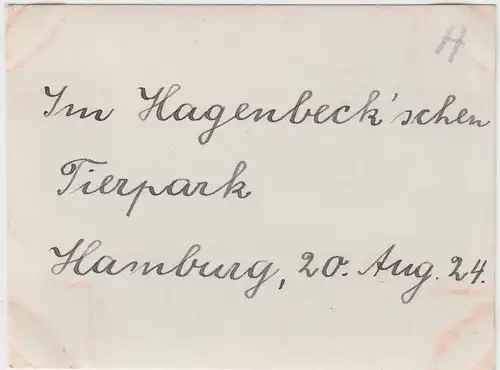 H
Im Hagenbeck'schen
Tierpark
Hamburg, 20. Aug. 24.